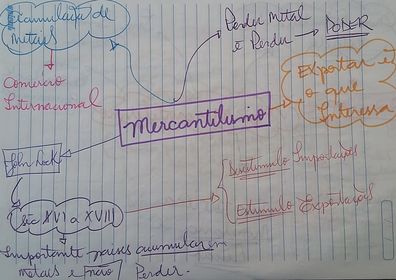 Acumulação de
Metais
Comercio
Internacional
Perder Metal
é Perder → PODER
Exportar é
o que
Interessa
Mercantilismo
John Lock
séc XVI a XVIII
Desestimulo Importações
Estimulo Exportações
Importante países acumularem
metais e não Perder.